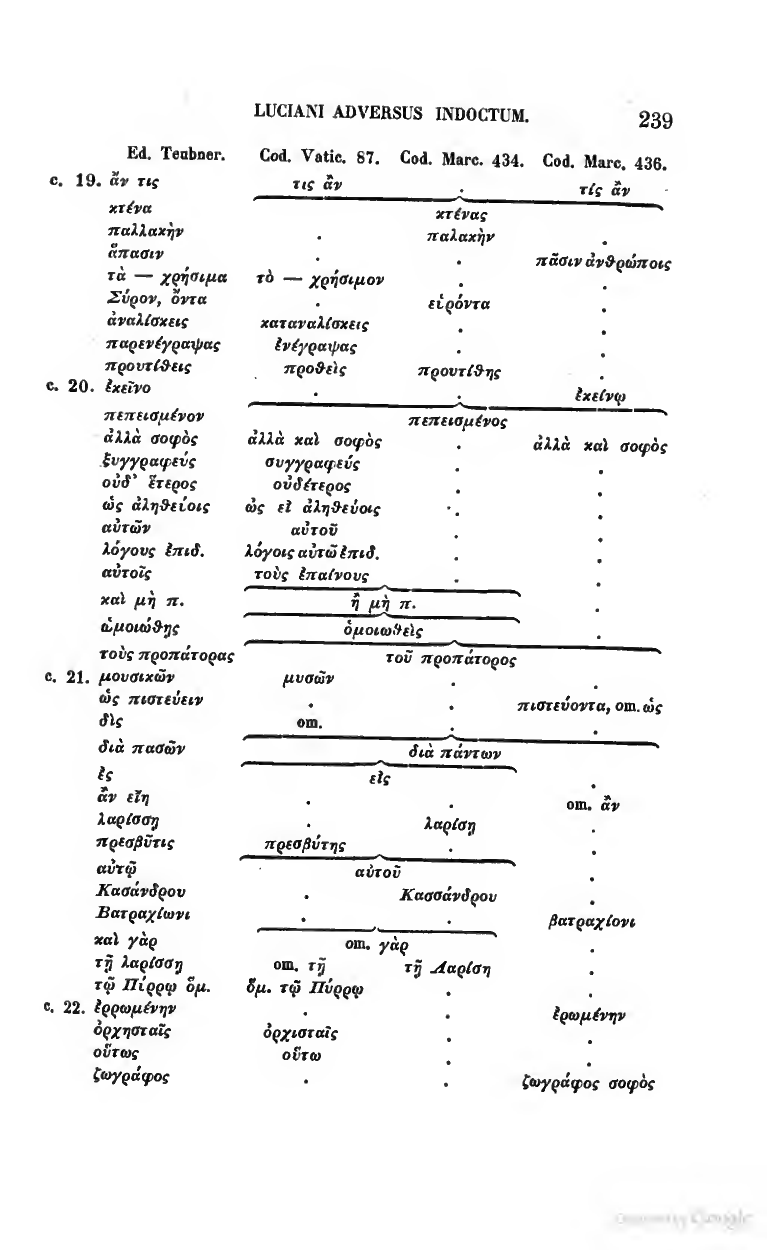 LUCIANI ADVERSUS INDOCTUM. 239
Ed. Teubner. Cod. Vatic. 87. Cod. Marc. 434. Cod. Marc. 436.
c. 19. ἄν τις τις ἂν . τίς ἂν
κτένα κτένας
παλλακὴν . παλακὴν .
ἅπασιν . . πᾶσιν ἀνθρώποις
τὰ — χρήσιμα τὸ — χρήσιμον . .
Σύρον, ὄντα . εἱρόντα .
ἀναλίσκεις καταναλίσκεις . .
παρενέγραψας ἐνέγραψας . .
προυτίθεις προθεὶς προυτίθης .
c. 20. ἐκεῖνο . . ἐκείνῳ
πεπεισμένον πεπεισμένος
ἀλλὰ σοφὸς ἀλλὰ καὶ σοφὸς . ἀλλὰ καὶ σοφὸς
ξυγγραφεύς συγγραφεύς . .
οὐδ' ἕτερος οὐδέτερος . .
ὡς ἀληθεύοις ὡς εἰ ἀληθεύοις . .
αὐτῶν αὐτοῦ . .
λόγους ἐπιδ. λόγοις αὐτῶ ἐπιδ. . .
αὐτοῖς τοὺς ἐπαίνους . .
καὶ μὴ π. ἢ μὴ π. .
ὡμοιώθης ὁμοιωθεὶς .
τοὺς προπάτορας τοῦ προπάτορος
c. 21. μουσικῶν μυσῶν . .
ὡς πιστεύειν . . πιστεύοντα, om. ὡς
δὶς om. . .
διὰ πασῶν διὰ πάντων
ἐς εἰς .
ἂν εἴη . . om. ἂν
λαρίσσῃ . λαρίσῃ .
πρεσβῦτις πρεσβύτης . .
αὐτῷ αὐτοῦ .
Κασάνδρου . Κασσάνδρου .
Βατραχίωνι . . βατραχίονι
καὶ γὰρ om. γὰρ .
τῇ λαρίσσῃ om. τῇ τῇ Λαρίσῃ .
τῷ Πύρρῳ ὅμ. ὅμ. τῷ Πύρρῳ . .
c. 22. ἐρρωμένην . . ἐρωμένην
ὀρχησταῖς ὀρχισταῖς . .
οὕτως οὕτω . .
ζωγράφος . . ζωγράφος σοφὸς